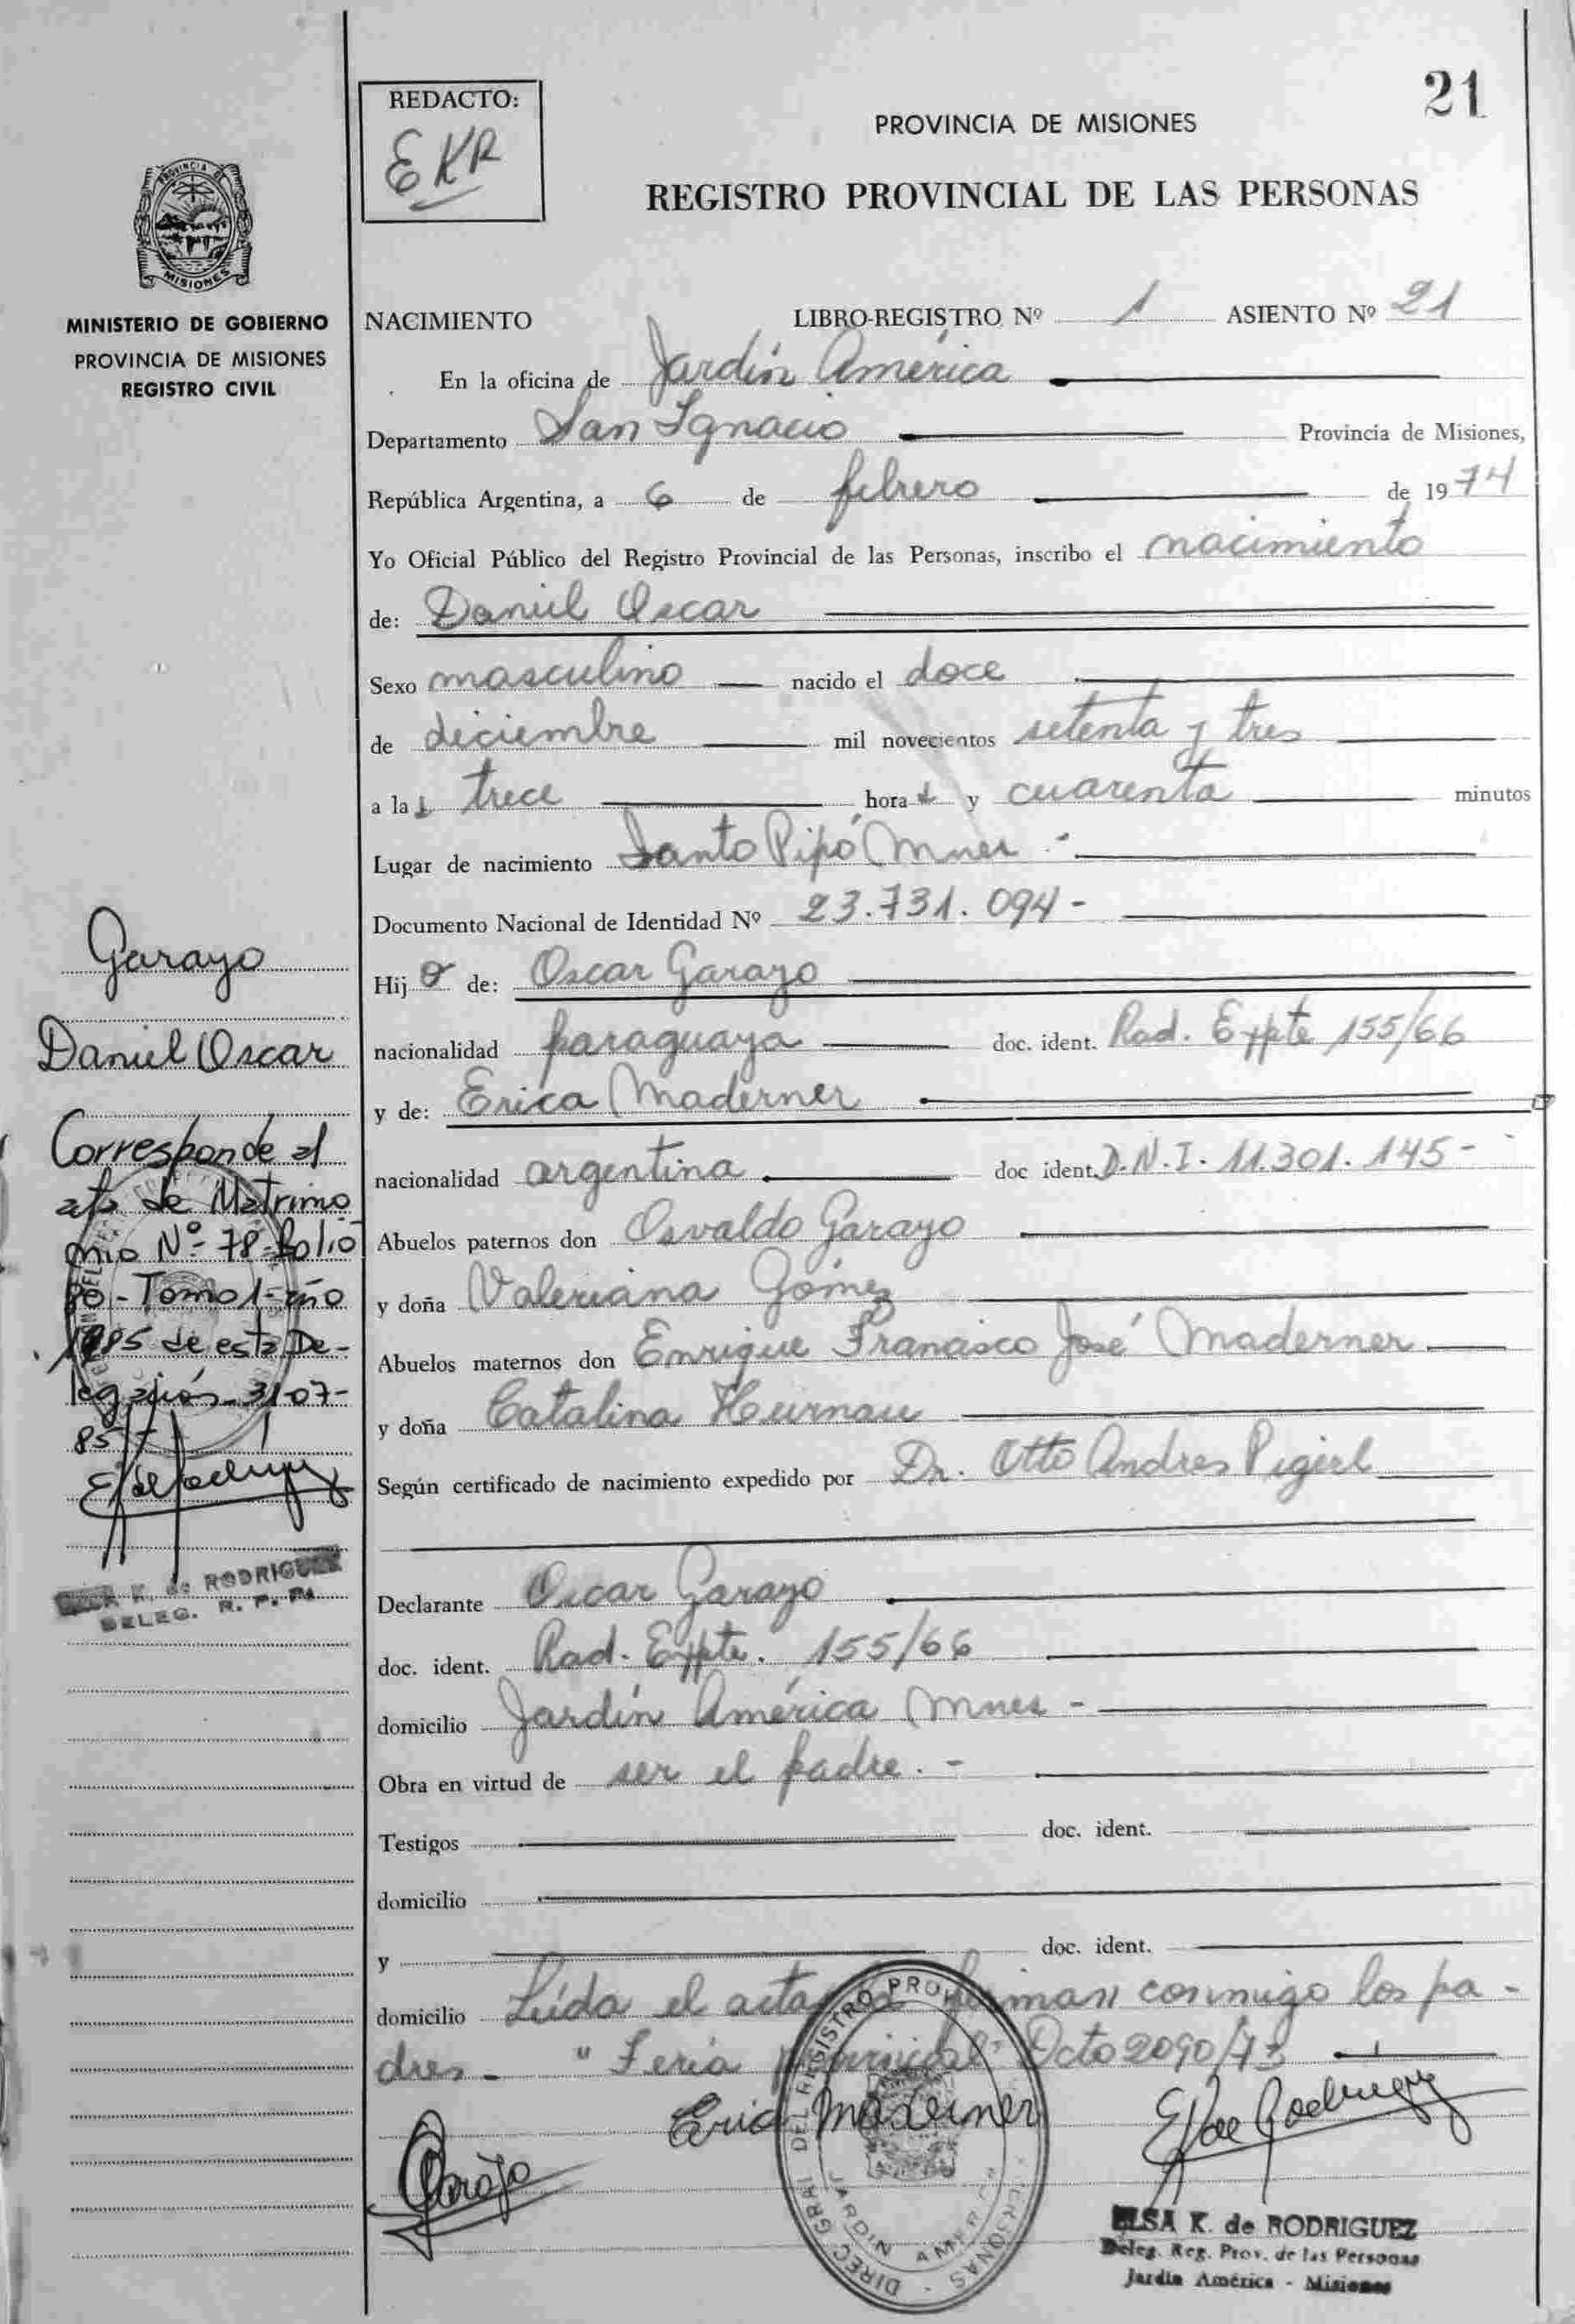 21
REDACTO:
EKR
PROVINCIA DE MISIONES
REGISTRO PROVINCIAL DE LAS PERSONAS
PROVINCIA DE
MISIONES
MINISTERIO DE GOBIERNO
PROVINCIA DE MISIONES
REGISTRO CIVIL
NACIMIENTO LIBRO-REGISTRO Nº 1 ASIENTO Nº 21
En la oficina de Jardín América
Departamento San Ignacio Provincia de Misiones,
República Argentina, a 6 de febrero de 1974
Yo Oficial Público del Registro Provincial de las Personas, inscribo el nacimiento
de: Daniel Oscar
Sexo masculino nacido el doce
de diciembre mil novecientos setenta y tres
a las trece horas y cuarenta minutos
Lugar de nacimiento Santo Pipó Mnes -
Documento Nacional de Identidad Nº 23.731.094-
Hijo de: Oscar Garayo
nacionalidad paraguaya doc. ident. Rad. Expte 155/66
y de: Erica Maderner
nacionalidad argentina doc ident. D.N.I. 11.301.145-
Abuelos paternos don Osvaldo Garayo
y doña Valeriana Gómez
Abuelos maternos don Enrique Francisco José Maderner
y doña Catalina
Según certificado de nacimiento expedido por Dr. Otto Andres
Declarante Oscar Garayo
doc. ident. Rad. Expte. 155/66
domicilio Jardín América Mnes -
Obra en virtud de ser el padre. -
Testigos doc. ident.
domicilio
y doc. ident.
domicilio Leída el acta la firman conmigo los pa-
dres - "Feria provincial" Dcto 2090/73
Garayo
Daniel Oscar
Corresponde al
acta de Matrimo
nio Nº 78-Folio
80-Tomo 1-año
1985 de esta De-
legación-31-07-
85
K. de RODRIGUEZ
DELEG. R. P. P.
Erica Maderner
DIREC GRAL DEL REGISTRO PROV. PERSONAS
JARDIN AMERICA
ELSA K. de RODRIGUEZ
Deleg. Reg. Prov. de las Personas
Jardín América - Misiones